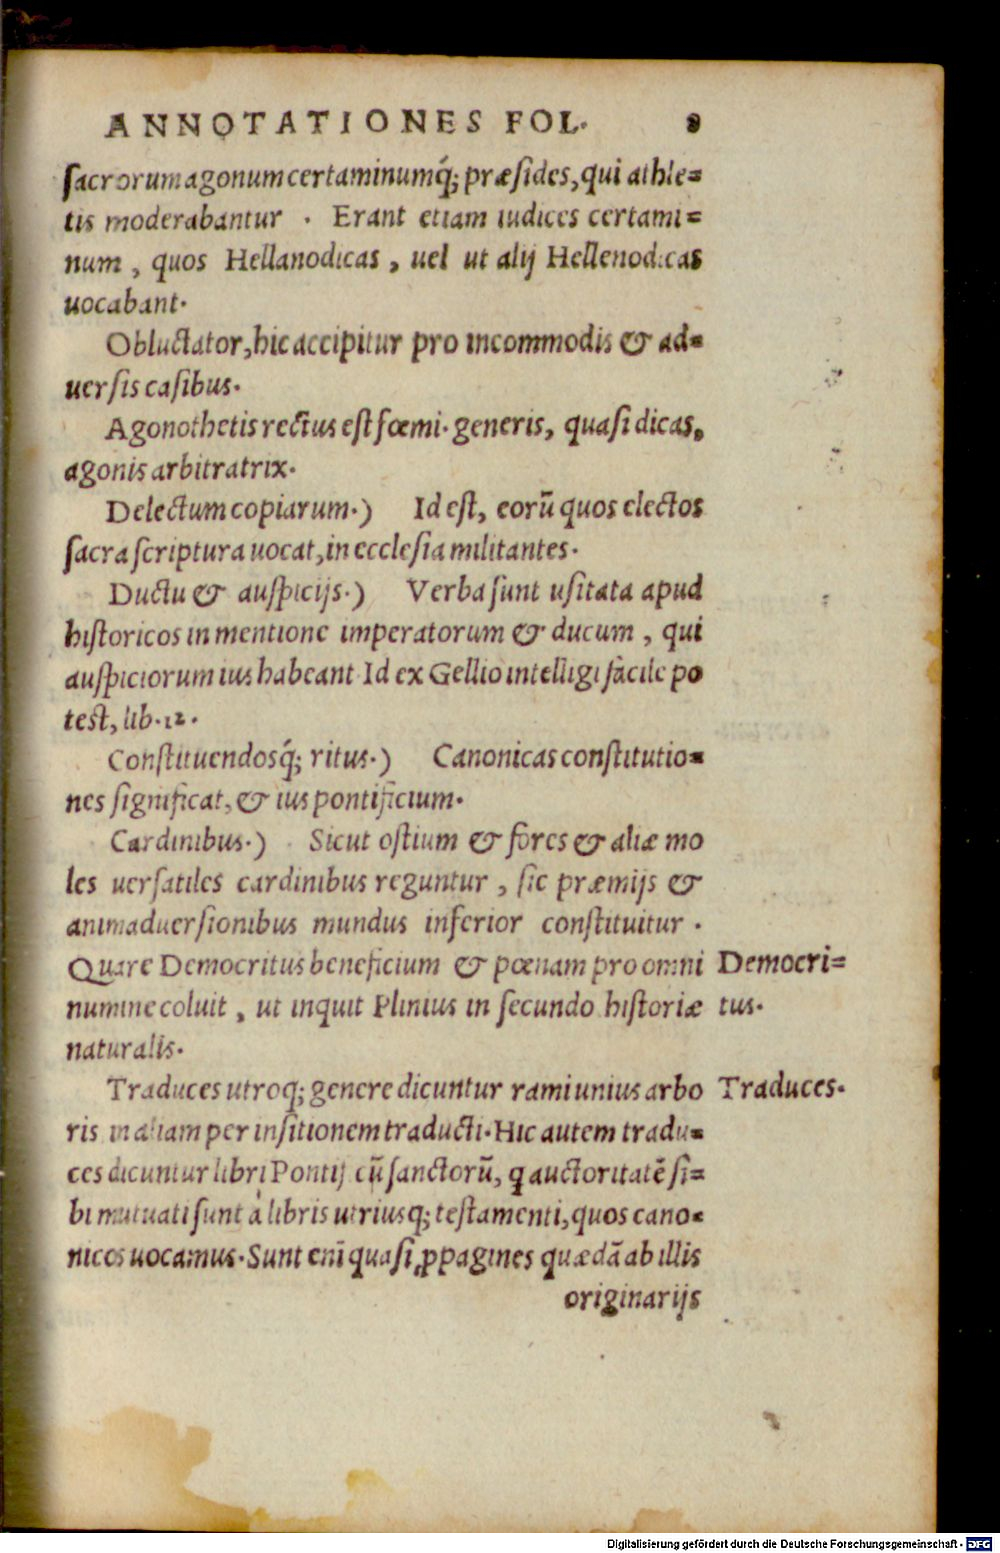 ANNOTATIONES FOL. 8
sacrorum agonum certaminumq́; præsides, qui athle=
tis moderabantur . Erant etiam iudices certami=
num , quos Hellanodicas , uel ut alij Hellenodicas
uocabant.
Obluctator, hic accipitur pro incommodis & ad=
uersis casibus.
Agonothetis rectius est fœmi. generis, quasi dicas,
agonis arbitratrix.
Delectum copiarum.) Id est, eorũ quos electos
sacra scriptura uocat, in ecclesia militantes.
Ductu & auspicijs.) Verba sunt usitata apud
historicos in mentione imperatorum & ducum , qui
auspiciorum ius habeant Id ex Gellio intelligi facile po
test, lib. 12.
Constituendosq́; ritus.) Canonicas constitutio=
nes significat, & ius pontificium.
Cardinibus.) Sicut ostium & fores & aliæ mo
les uersatiles cardinibus reguntur , sic præmijs &
animaduersionibus mundus inferior constituitur .
Quare Democritus beneficium & pœnam pro omni Democri=
numine coluit , ut inquit Plinius in secundo historiæ tus.
naturalis.
Traduces utroq; genere dicuntur rami unius arbo Traduces.
ris in aliam per insitionem traducti. Hic autem tradu=
ces dicuntur libri Pontij cũ sanctorũ, ꝗ auctoritatẽ si=
bi mutuati sunt à libris utriusq; testamenti, quos cano=
nicos uocamus. Sunt enĩ quasi ꝓpagines quædã ab illis
originarijs
Digitalisierung gefördert durch die Deutsche Forschungsgemeinschaft - DFG